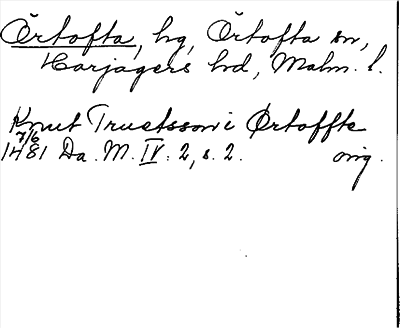 Örtofta, hg, Örtofta sn,
Harjagers hd, Malm. l.
Knut Truetsson i Ørtoffte
7/6
1481 Da. M. IV: 2, s. 2. orig.